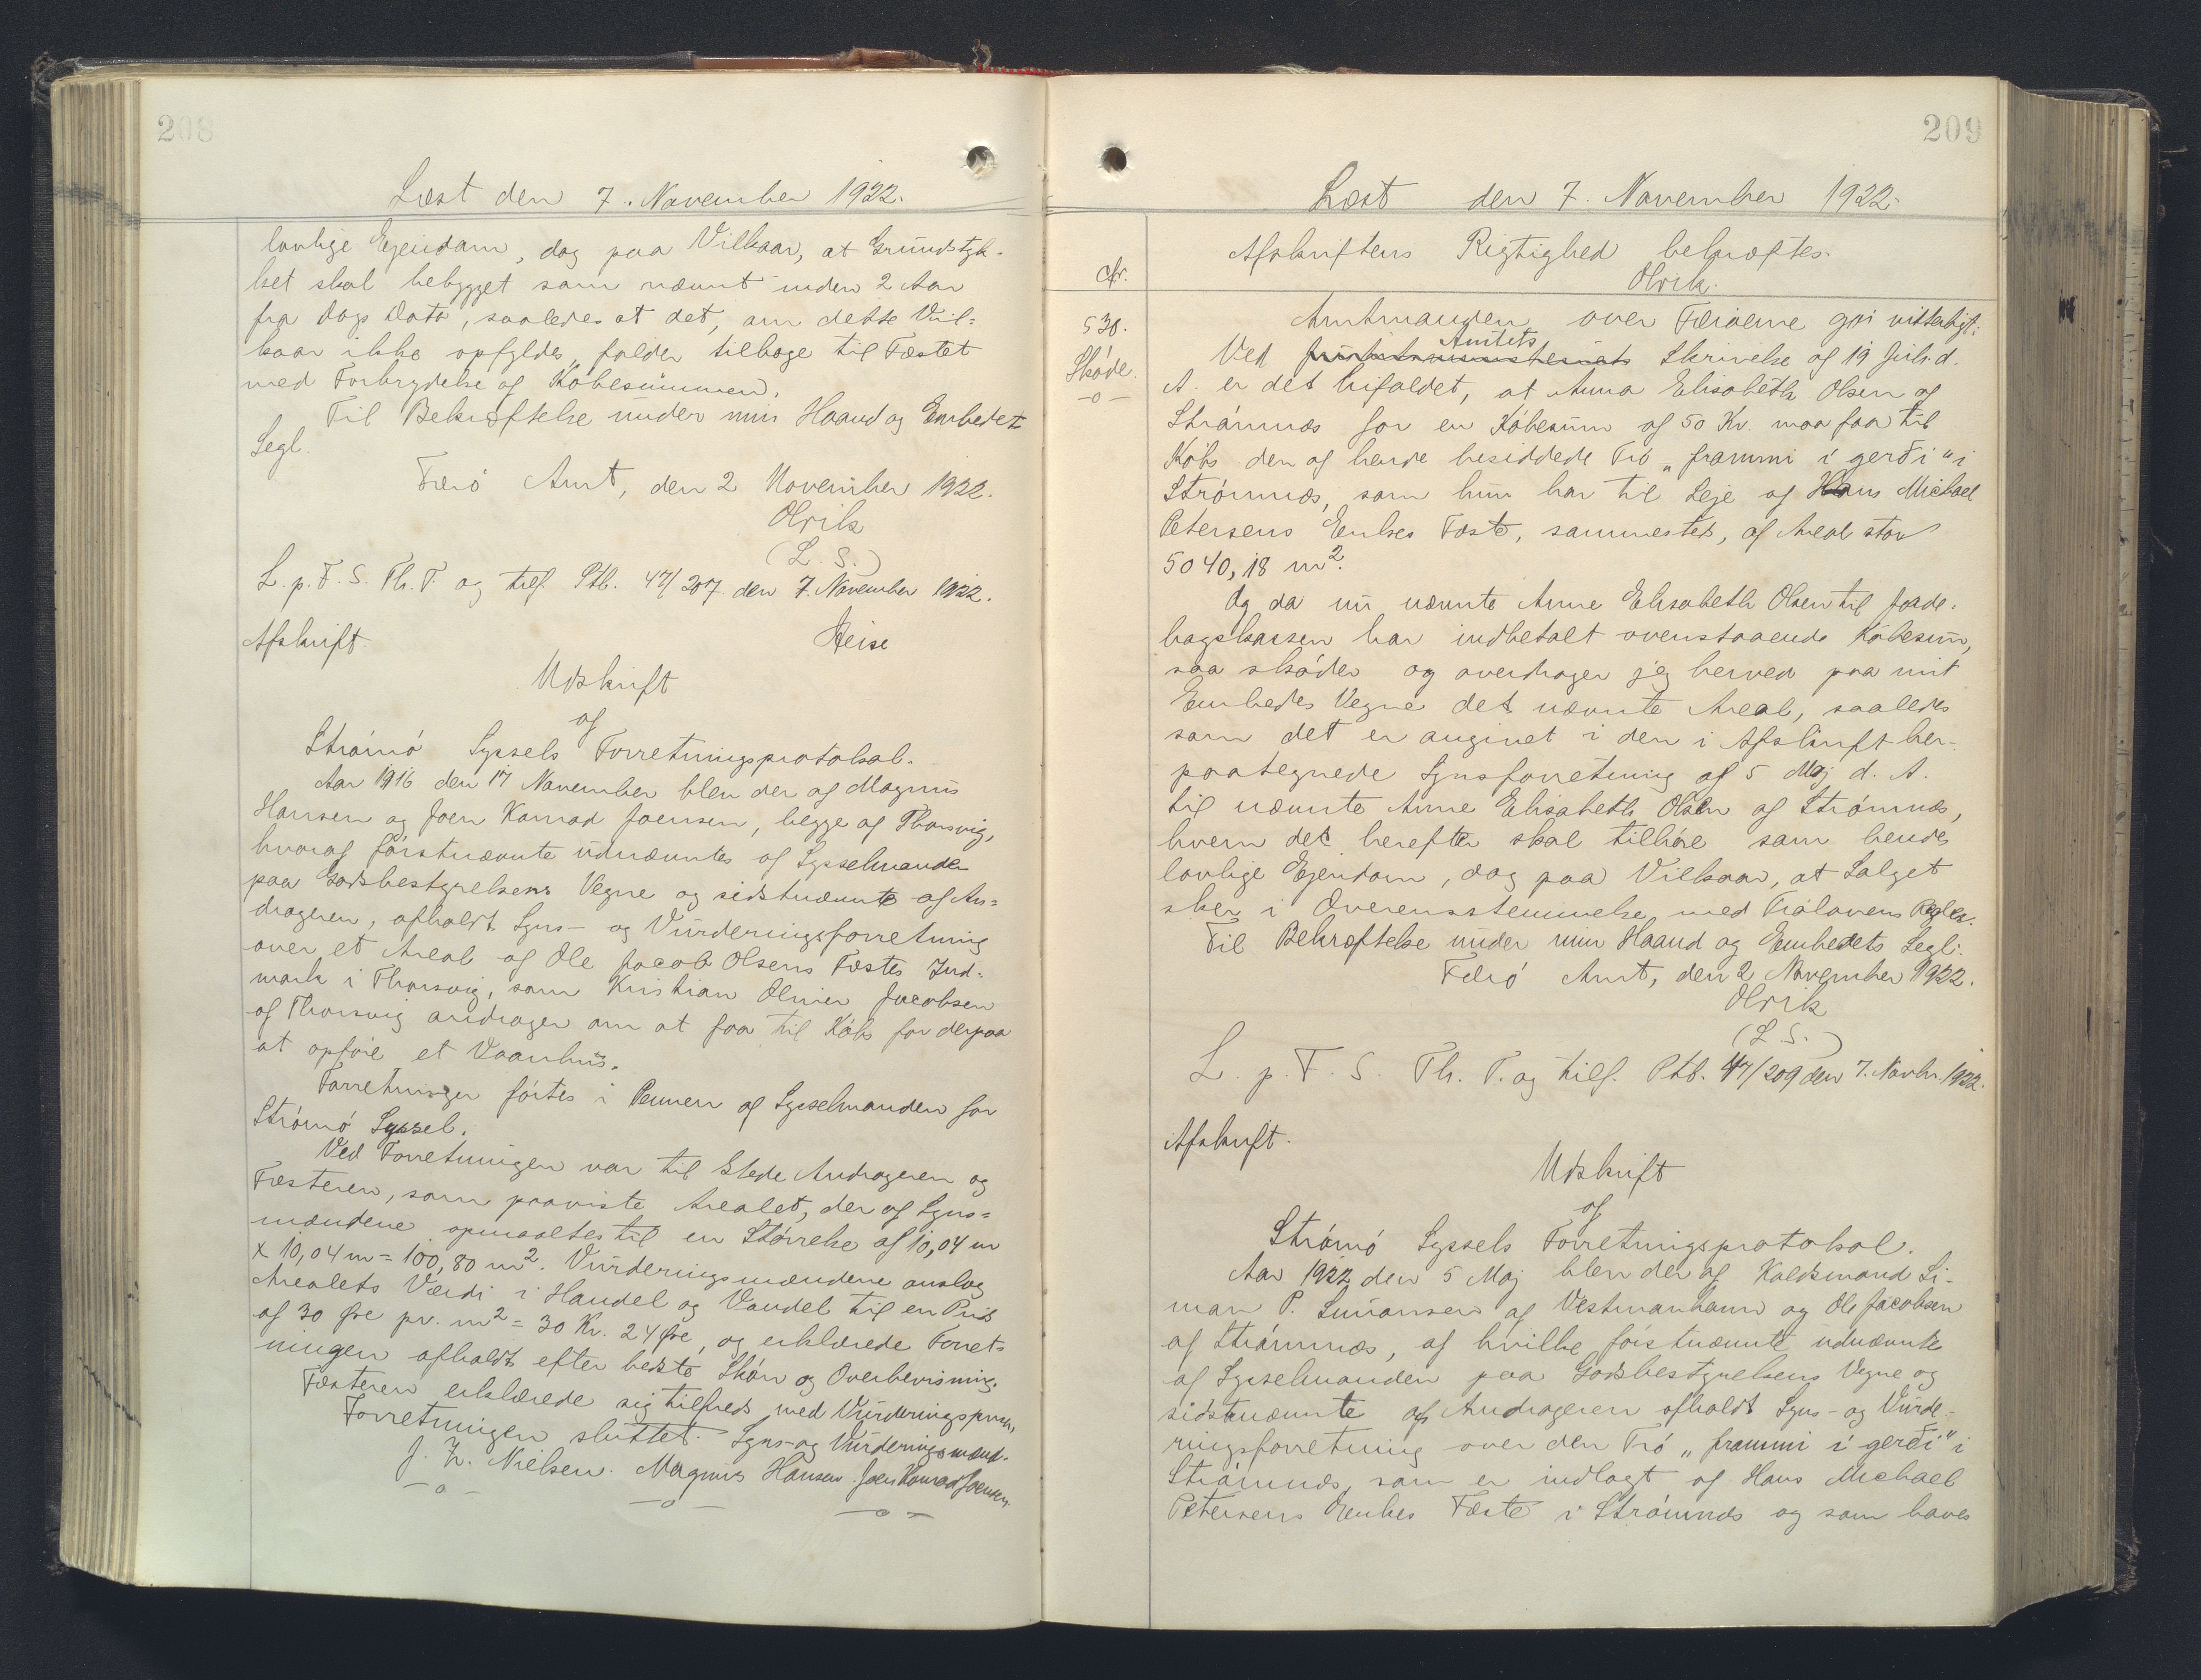 208
Læst den 7. November 1922.
lovlige Ejendom, dog paa Vilkaar, at Grundstyk-
ket skal bebygget som nævnt inden 2 Aar
fra Dags Dato, saaledes at det, om dette Vil=
kaar ikke opfyldes, falder tilbage til Fæstet
med Forbrydelse af Købesummen.
Til Bekræftelse under min Haand og Embedet
Segl.
Færø Amt, den 2 November 1922.
Olrik
(L. S.)
L. p. F. S. Th. T. og tilf. Ptb. 47/207 den 7. November 1922.
Heise
Afskrift.
Udskrift
af
Strømø Syssels Forretningsprotokol.
Aar 1916 den 17 November blev der af Magnus
Hansen og Joen Konrad Joensen, begge af Thorsvig,
hvoraf førstnævnte udnævntes af Sysselmanden
paa Godsbestyrelsens Vegne og sidstnævnte af An=
drageren, afholdt Syns- og Vurderingsforretning
over et Areal af Ole Jacob Olsens Fæstes Ind-
mark i Thorsvig, som Kristian Oliver Jacobsen
af Thorsvig andrager om at faa til Købs for derpaa
at opføre et Vaanhus.
Forretningen førtes i Pennen af Sysselmanden for
Strømø Syssel.
Ved Forretningen var til Stede Andrageren og
Fæsteren, som paaviste Arealet, der af Syns=
mændene opmaaltes til en Størrelse af 10,04 m
x 10,04 m = 100,80 m². Vurderingsmændene anslog
Arealets Værdi i Handel og Vandel til en Pris
af 30 Øre pr. m² = 30 Kr. 24 Øre, og erklærede Forret-
ningen afholdt efter bedste Skøn og Overbevisning.
Fæsteren erklærede sig tilfreds med Vurderingsprisen,
Forretningen sluttet. Syns- og Vurderingsmænd.
J. H. Nielsen. Magnus Hansen. Joen Konrad Joensen.
-o- -o- -o-
209
Læst den 7. November 1922.
Afskriftens Rigtighed bekræftes.
Olrik.
Nr.
538.
Skøde.
-o-
Amtmanden over Færøerne gør vitterligt:
Amtets
Ved Skrivelse af 19 Juli d.
A. er det bifaldet, at Anna Elisabeth Olsen af
Strømnæs for en Købesum af 50 Kr. maa faa til
Købs den af hende besiddede Trø „frammi í gerði" i
Strømnæs, som hun har til Leje af Hans Michael
Petersens Enkes Fæste, sammesteds, af Areal stor
5040,18 m².
Og da nu nævnte Anne Elisabeth Olsen til Jorde-
bogskassen har indbetalt ovenstaaende Købesum,
saa skøder og overdrager jeg herved paa mit
Embedes Vegne det nævnte Areal, saaledes
som det er angivet i den i Afskrift her-
paategnede Synsforretning af 5 Maj d. A.
til nævnte Anne Elisabeth Olsen af Strømnæs,
hvem det herefter skal tilhøre som hendes
lovlige Ejendom, dog paa Vilkaar, at Salget
sker i Overensstemmelse med Trølovens Regler.
Til Bekræftelse under min Haand og Embedets Segl.
Færø Amt, den 2 November 1922.
Olrik
(L. S.)
L. p. F. S. Th. T. og tilf. Ptb. 47/209 den 7. Novbr. 1922.
Afskrift.
Udskrift
af
Strømø Syssels Forretningsprotokol.
Aar 1922 den 5 Maj blev der af Kaldsmand Si-
mon P. Simonsen af Vestmanhavn og Ole Jacobsen
af Strømnæs, af hvilke førstnævnte udnævnte
af Sysselmanden paa Godsbestyrelsens Vegne og
sidstnævnte af Andrageren afholdt Syns- og Vurde-
ringsforretning over den Trø „frammi í gerði" i
Strømnæs, som er indlagt af Hans Michael
Petersens Enkes Fæste i Strømnæs og som haves